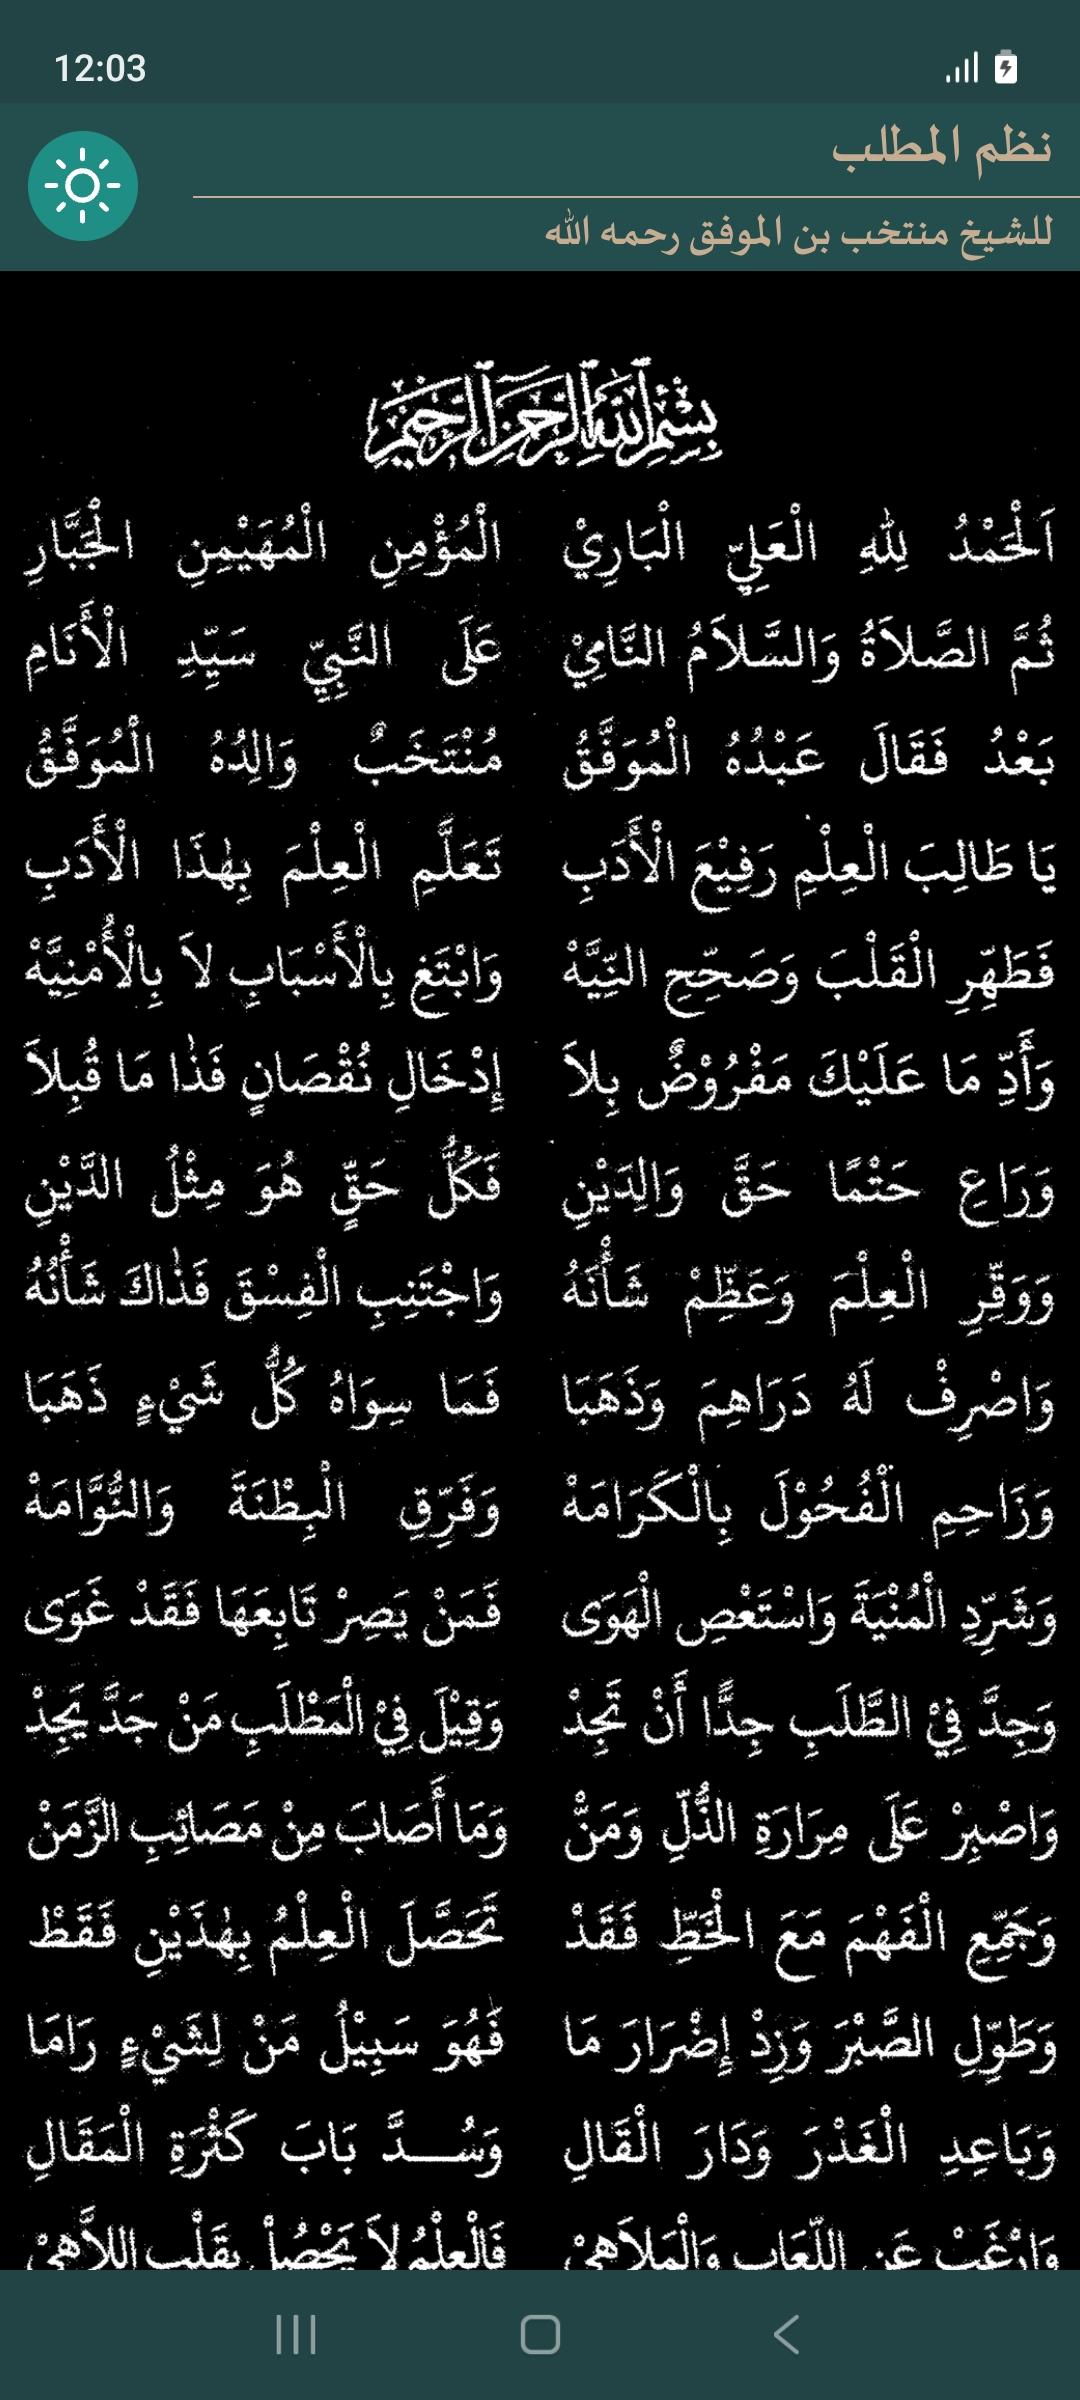 12:03
نظم المطلب
للشيخ منتخب بن الموفق رحمه الله
بِسْمِ اللَّهِ الرَّحْمَنِ الرَّحِيمِ
اَلْحَمْدُ لِلّٰهِ الْعَلِيِّ الْبَارِيْ الْمُؤْمِنِ الْمُهَيْمِنِ الْجَبَّارِ
ثُمَّ الصَّلاَةُ وَالسَّلاَمُ النَّامِيْ عَلَى النَّبِيِّ سَيِّدِ الْأَنَامِ
بَعْدُ فَقَالَ عَبْدُهُ الْمُوَفَّقُ مُنْتَخَبٌ وَالِدُهُ الْمُوَفَّقُ
يَا طَالِبَ الْعِلْمِ رَفِيْعَ الْأَدَبِ تَعَلَّمِ الْعِلْمَ بِهٰذَا الْأَدَبِ
فَطَهِّرِ الْقَلْبَ وَصَحِّحِ النِّيَّهْ وَابْتَغِ بِالْأَسْبَابِ لاَ بِالْأُمْنِيَّهْ
وَأَدِّ مَا عَلَيْكَ مَفْرُوْضٌ بِلاَ إِدْخَالِ نُقْصَانٍ فَذٰا مَا قُبِلاَ
وَرَاعِ حَتْمًا حَقَّ وَالِدَيْنِ فَكُلُّ حَقٍّ هُوَ مِثْلُ الدَّيْنِ
وَوَقِّرِ الْعِلْمَ وَعَظِّمْ شَأْنَهُ وَاجْتَنِبِ الْفِسْقَ فَذٰاكَ شَأْنُهُ
وَاصْرِفْ لَهُ دَرَاهِمَ وَذَهَبَا فَمَا سِوَاهُ كُلُّ شَيْءٍ ذَهَبَا
وَزَاحِمِ الْفُحُوْلَ بِالْكَرَامَهْ وَفَرِّقِ الْبِطْنَةَ وَالنُّوَّامَهْ
وَشَرِّدِ الْمُنْيَةَ وَاسْتَعْصِ الْهَوَى فَمَنْ يَصِرْ تَابِعَهَا فَقَدْ غَوَى
وَجِدَّ فِيْ الطَّلَبِ جِدًّا أَنْ تَجِدْ وَقِيْلَ فِيْ الْمَطْلَبِ مَنْ جَدَّ يَجِدْ
وَاصْبِرْ عَلَى مِرَارَةِ الذُّلِّ وَمَنْ وَمَا أَصَابَ مِنْ مَصَائِبِ الزَّمَنْ
وَجَمِّعِ الْفَهْمَ مَعَ الْخَطِّ فَقَدْ تَحَصَّلَ الْعِلْمُ بِهٰذَيْنِ فَقَطْ
وَطَوِّلِ الصَّبْرَ وَزِدْ إِضْرَارَ مَا فَهُوَ سَبِيْلُ مَنْ لِشَيْءٍ رَامَا
وَبَاعِدِ الْغَدْرَ وَدَارَ الْقَالِ وَسُدَّ بَابَ كَثْرَةِ الْمَقَالِ
وَارْغَبْ عَنِ اللَّعَابِ وَالْمَلاَهِيْ فَالْعِلْمُ لاَ يَحْصُلْ بِقَلْبِ اللاَّهِيْ